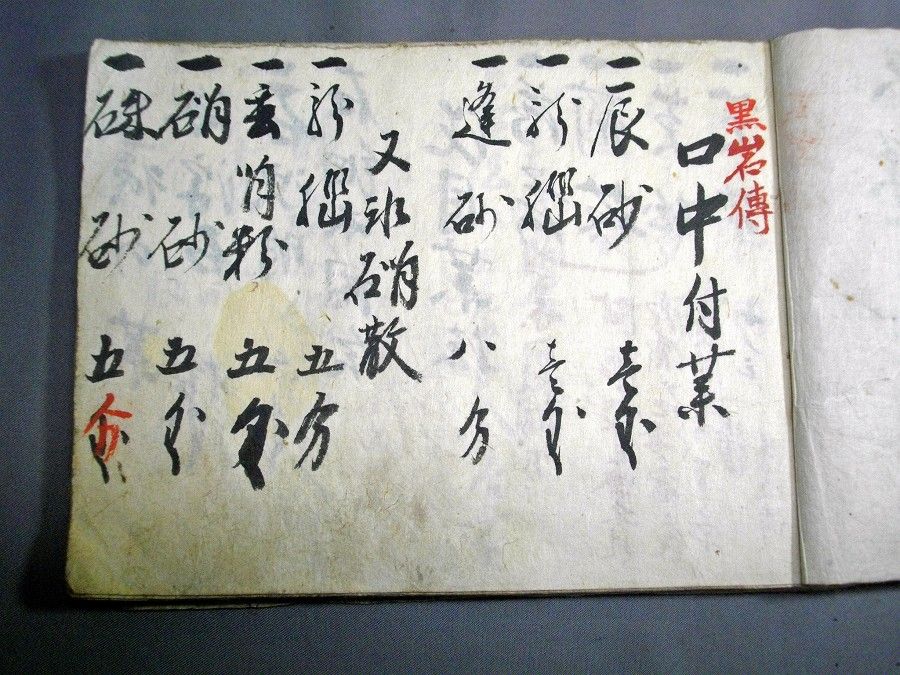 黒岩傳
口中付薬
一辰砂 壱匁
一龍脳 壱匁
一逢砂 八分
又氷硝散
一龍脳 五分
一玄明粉 五匁
一硝砂 五匁
一硃砂 五分